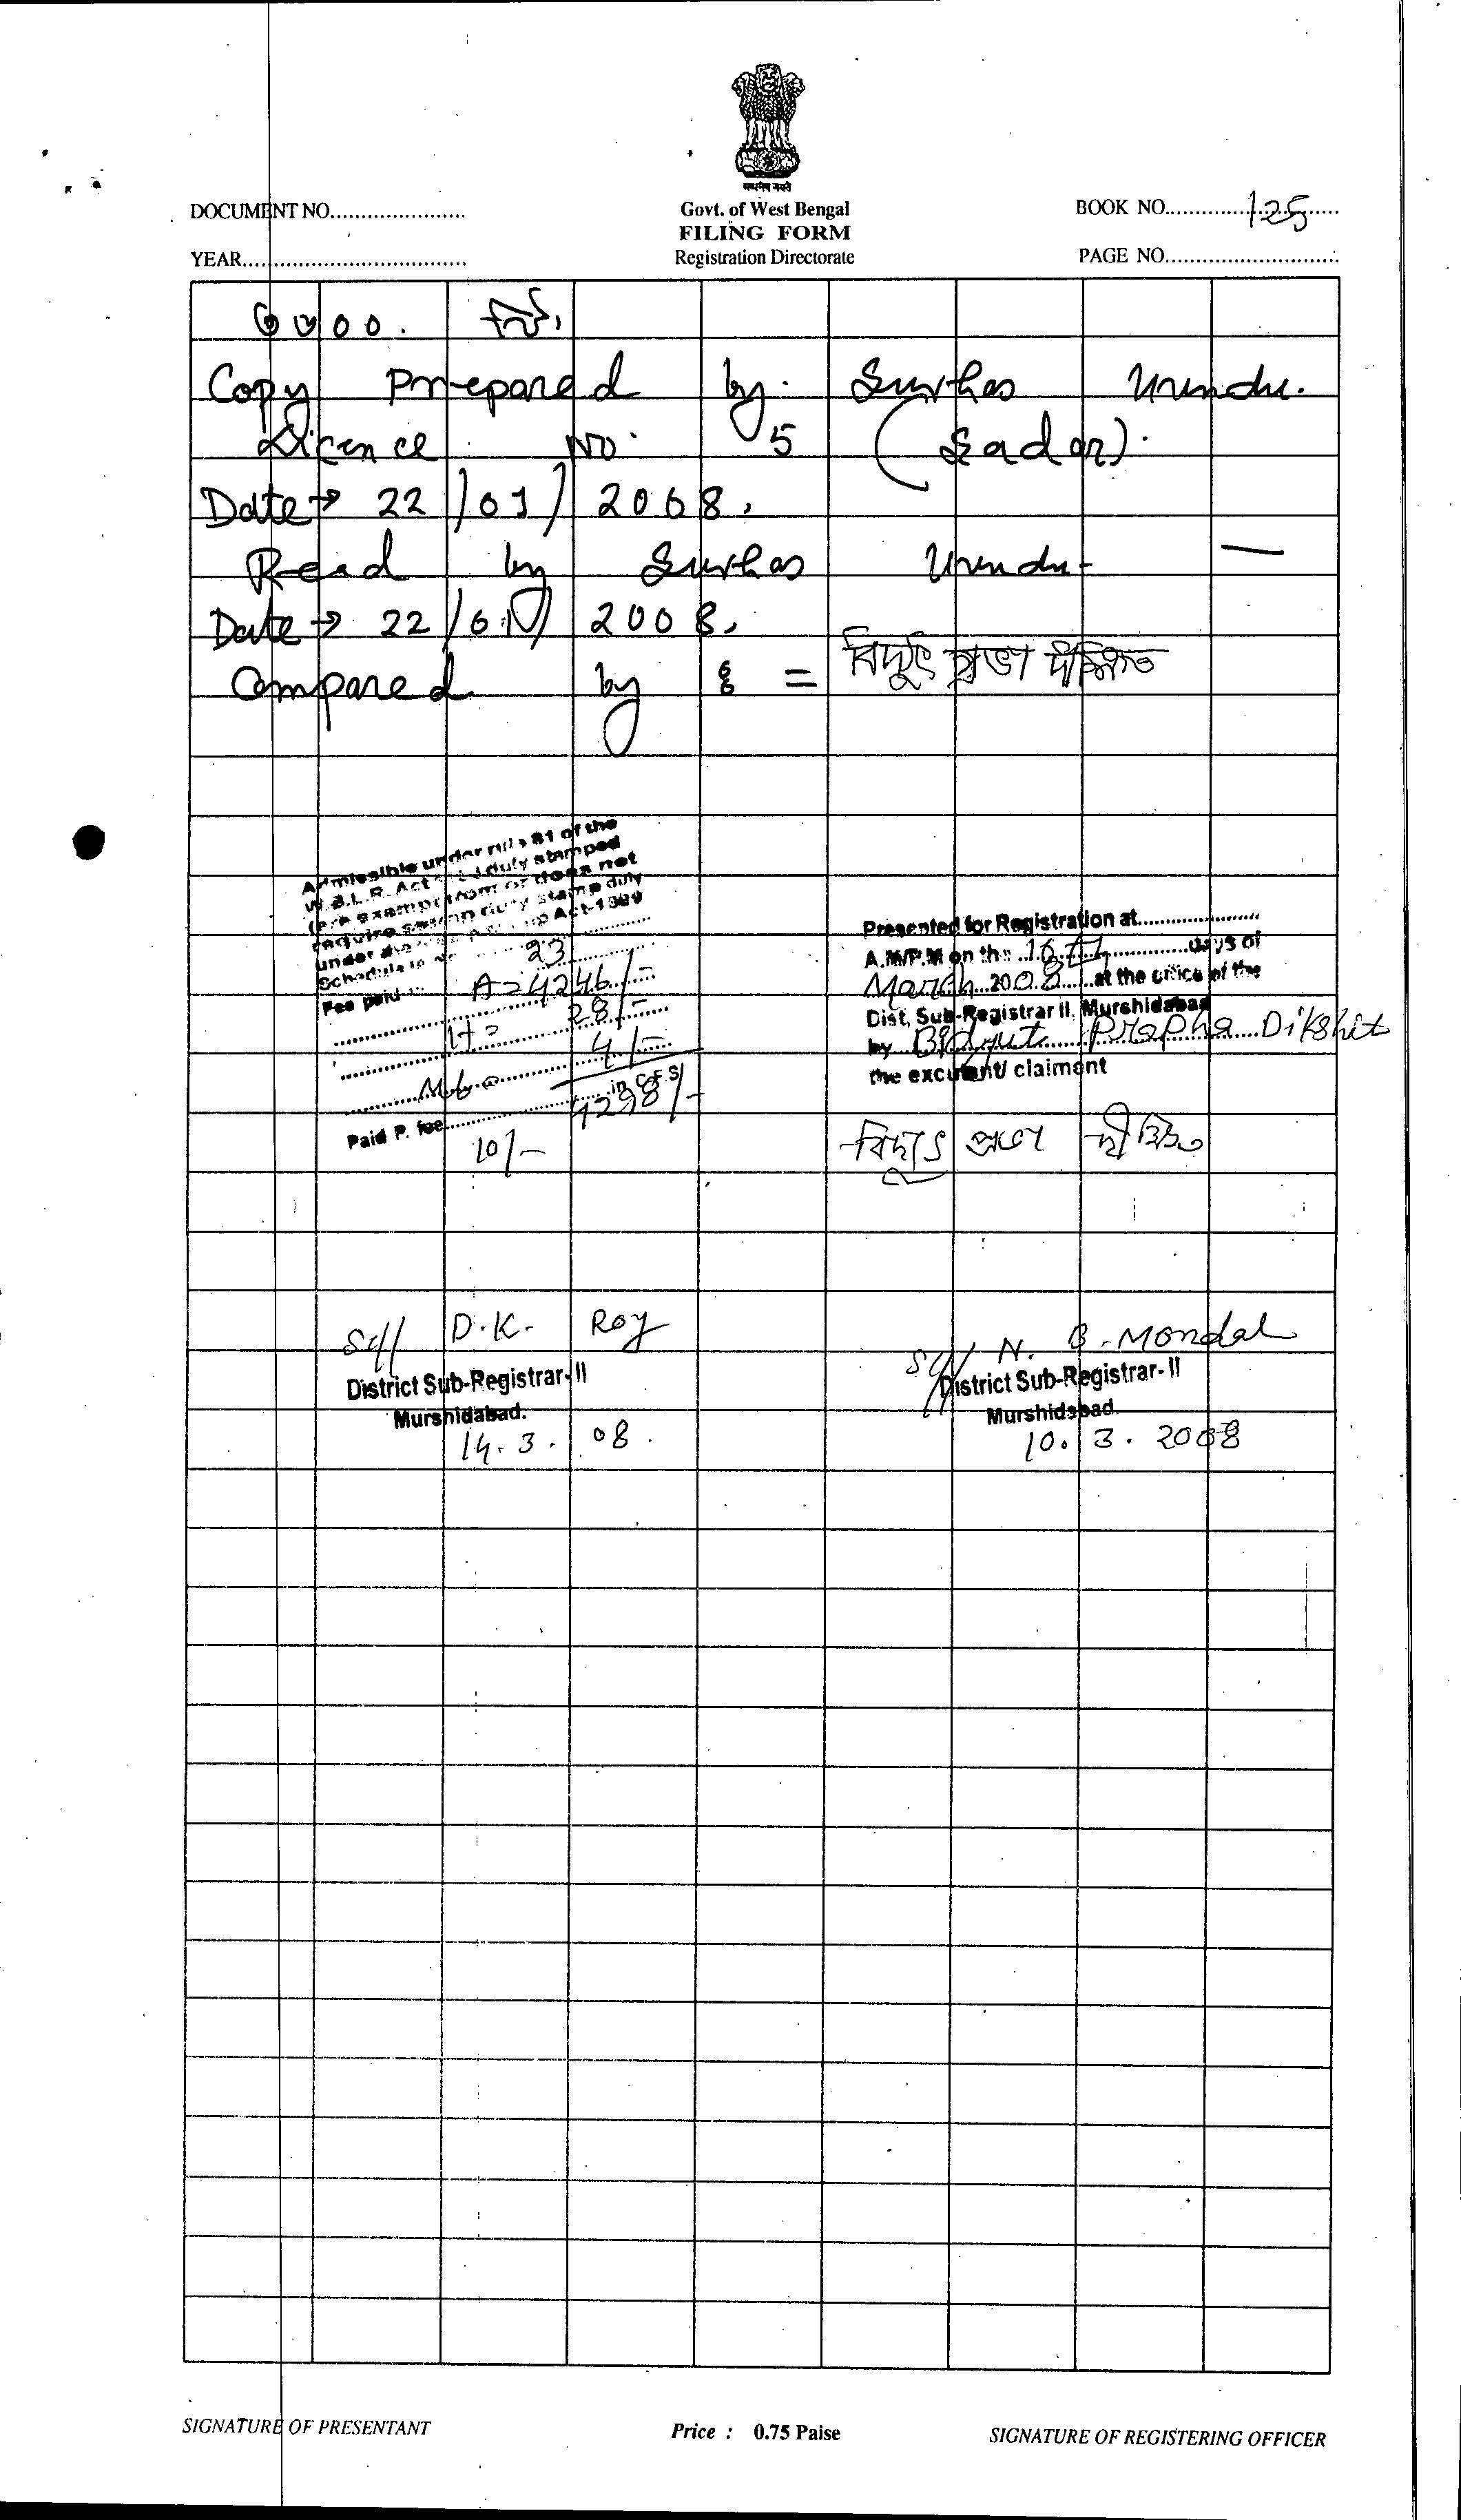 सत्यमेव जयते
DOCUMENT NO......................
Govt. of West Bengal
BOOK NO. 125
FILING FORM
YEAR..................................
Registration Directorate
PAGE NO............................
Copy Prepared by.
Licence No. 5 (Sadar).
Date → 22/01/2008.
Read by
Date → 22/01/2008.
Compared by : = বিদ্যুৎ প্রভা দীক্ষিত
Admissible under rule 81 of the
W.B.L.R. Act duly stamped
(are exempt from or does not
require stamp duty stamp duty
under the Act-1899
Schedule 23
Fee paid A = 4246/-
H = 28/-
4/-
Paid P. fee 4298/- in C.F.S
10/-
Presented for Registration at......................
A.M/P.M on the 10th days of
March 2008 at the office of the
Dist, Sub-Registrar II, Murshidabad
by Bidyut Prapha Dikshit
the excutant/ claimant
বিদ্যুৎ প্রভা দীক্ষিত
Sd/ D.K. Roy
District Sub-Registrar-II
Murshidabad.
14.3.08.
Sd/ N. B. Mondal
District Sub-Registrar-II
Murshidabad
10.3.2008
SIGNATURE OF PRESENTANT
Price : 0.75 Paise
SIGNATURE OF REGISTERING OFFICER